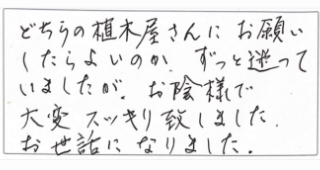 どちらの植木屋さんにお願い
したらよいのか、ずっと迷って
いましたが、お陰様で
大変スッキリ致しました。
お世話になりました。